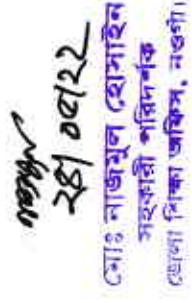 ২৪/০৭/২২
মোঃ নাজমুল হোসাইন
সহকারী পরিদর্শক
জেলা শিক্ষা অফিস, নওগাঁ।